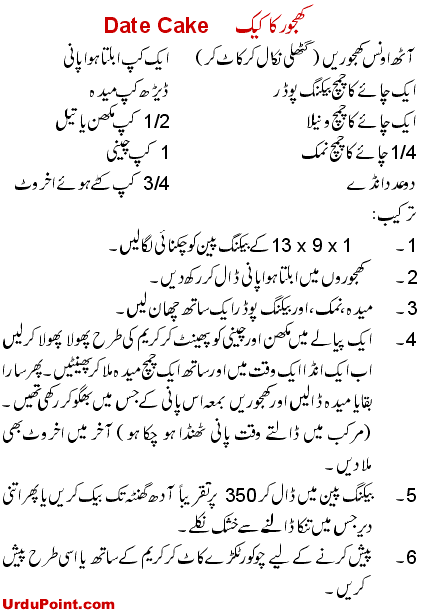 کھجور کا کیک Date Cake
آٹھ اونس کھجوریں (گٹھلی نکال کر کاٹ کر) ایک کپ ابلتا ہوا پانی
ایک چائے کا چمچ بیکنگ پوڈر ڈیڑھ کپ میدہ
ایک چائے کا چمچ ونیلا 1/2 کپ مکھن یا تیل
1/4 چائے کا چمچ نمک 1 کپ چینی
دو عدد انڈے 3/4 کپ کٹے ہوئے اخروٹ
ترکیب:
1۔ 13 x 9 x 1 کے بیکنگ پین کو چکنائی لگالیں۔
2۔ کھجوروں میں ابلتا ہوا پانی ڈال کر رکھ دیں۔
3۔ میدہ، نمک، اور بیکنگ پوڈر ایک ساتھ چھان لیں۔
4۔ ایک پیالے میں مکھن اور چینی کو پھینٹ کر کریم کی طرح پھولا پھولا کرلیں
اب ایک انڈا ایک وقت میں اور ساتھ ایک چمچ میدہ ملا کر پھینٹیں۔ پھر سارا
بقایا میدہ ڈالیں اور کھجوریں بمعہ اس پانی کے جس میں بھگو کر رکھی تھیں۔
(مرکب میں ڈالتے وقت پانی ٹھنڈا ہو چکا ہو) آخر میں اخروٹ بھی
ملا دیں۔
5۔ بیکنگ پین میں ڈال کر 350 پر تقریباً آدھ گھنٹہ تک بیک کریں یا پھر اتنی
دیر جس میں تنکا ڈالنے سے خشک نکلے۔
6۔ پیش کرنے کے لیے چوکور ٹکڑے کاٹ کر کریم کے ساتھ یا اسی طرح پیش
کریں۔
UrduPoint.com